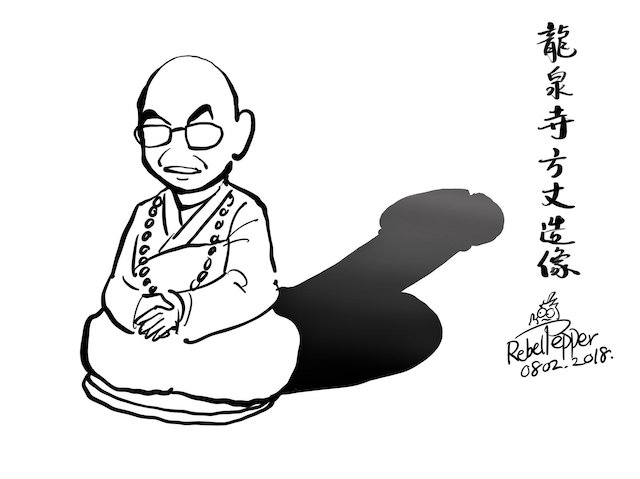 龍泉寺方丈造像
RebelPepper
0802.2018.